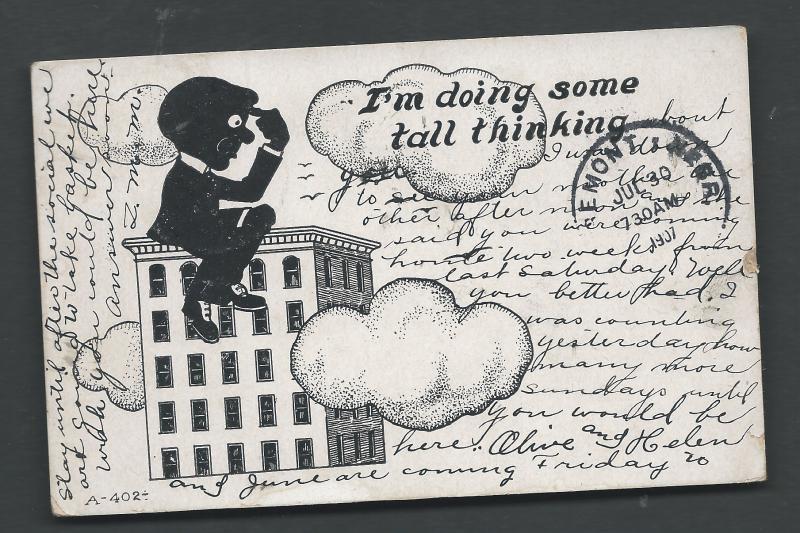 I'm doing some
tall thinking
about
you. I was down
to see mother
other after noon
said you were coming
home two weeks from
last Saturday. Well
you better had. I
was counting
yesterday how
many more
Sundays until
you would be
here. Olive and Helen
and June are coming Friday to
stay until after the social we
are going to take basket.
wish you could be here.
answer soon
L. M. M.
FREMONT, NEBR.
JUL 30
730 AM
1907
A-402-